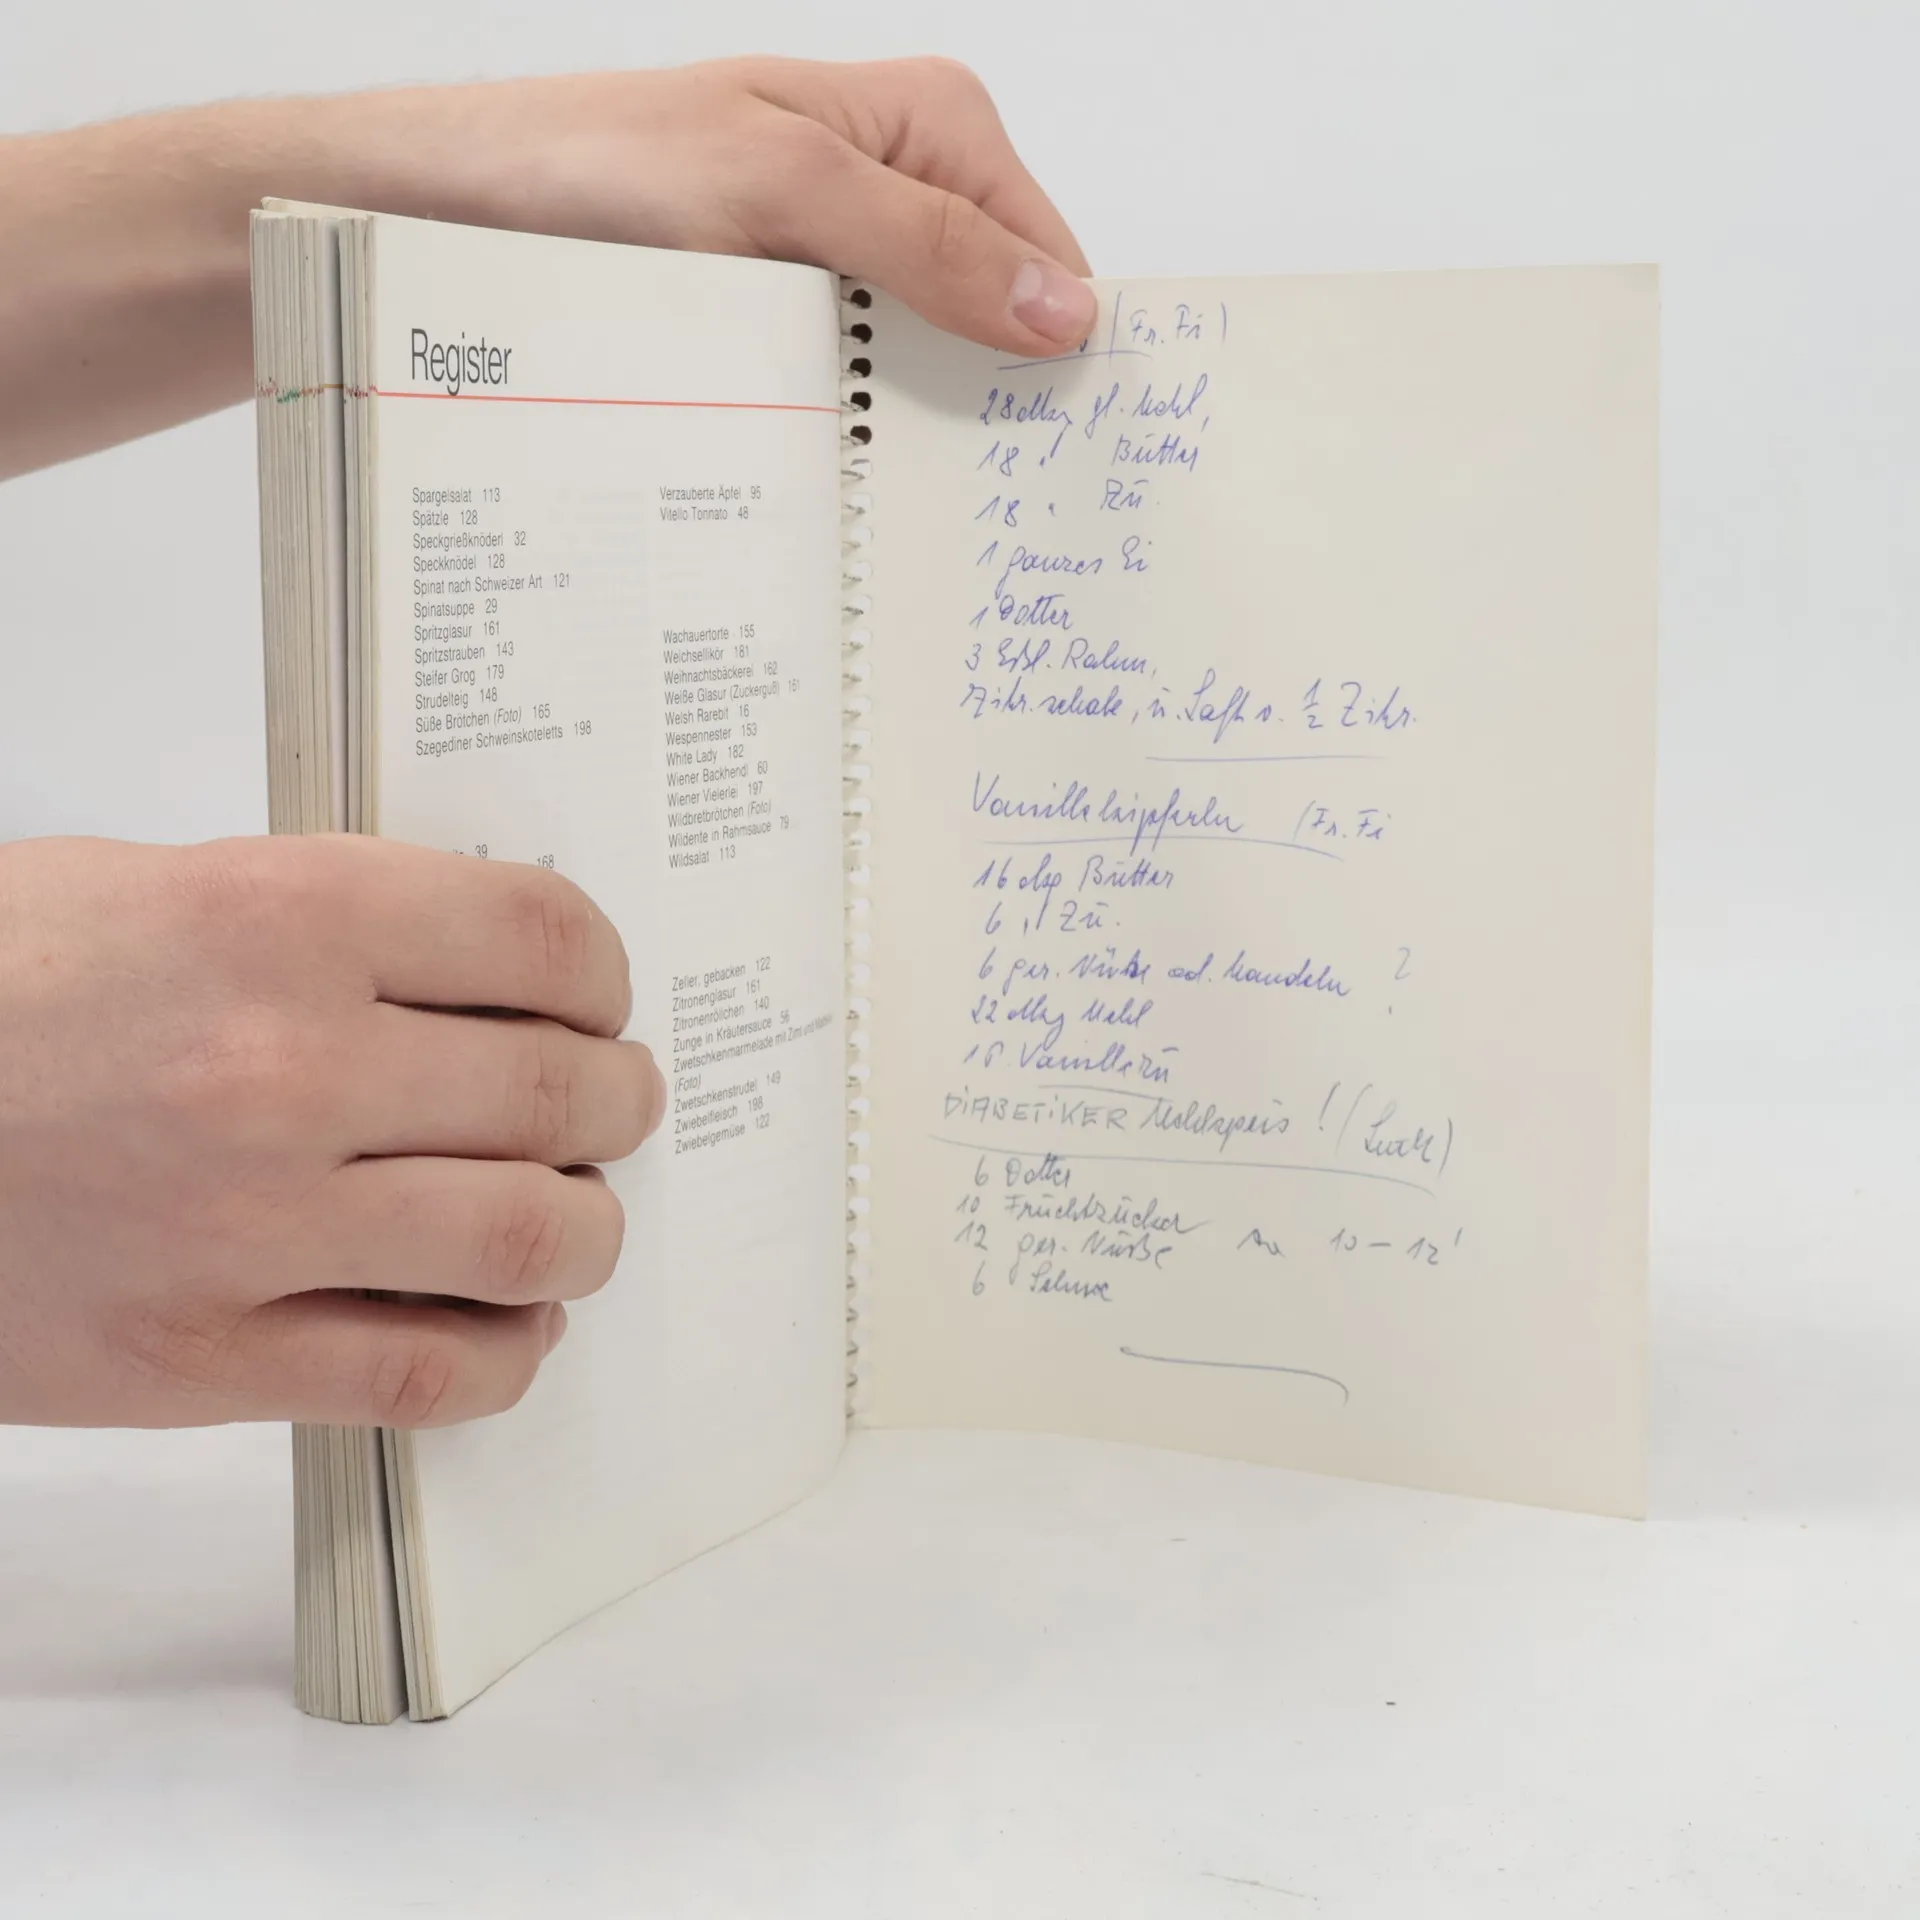 Register
Spargelsalat 113
Spätzle 128
Speckgrießknöderl 32
Speckknödel 128
Spinat nach Schweizer Art 121
Spinatsuppe 29
Spritzglasur 161
Spritzstrauben 143
Steifer Grog 179
Strudelteig 148
Süße Brötchen (Foto) 165
Szegediner Schweinskoteletts 198
39
168
Verzauberte Äpfel 95
Vitello Tonnato 48
Wachauertorte 155
Weichsellikör 181
Weihnachtsbäckerei 162
Weiße Glasur (Zuckerguß) 161
Welsh Rarebit 16
Wespennester 153
White Lady 182
Wiener Backhendl 60
Wiener Vielerlei 197
Wildbretbrötchen (Foto)
Wildente in Rahmsauce 79
Wildsalat 113
Zeller, gebacken 122
Zitronenglasur 161
Zitronenröllchen 140
Zunge in Kräutersauce 56
Zwetschkenmarmelade mit Zimt und
(Foto)
Zwetschkenstrudel 149
Zwiebelfleisch 198
Zwiebelgemüse 122
(Fr. Fi)
28 dkg gl. Mehl,
18 " Butter
18 " Zu.
1 ganzes Ei
1 Dotter
3 Eßl. Rahm,
Zitr. schale, u. Saft v. 1/2 Zitr.
Vanillekipferln (Fr. Fi
16 dkg Butter
6 " Zu.
6 ger. Nüße od. Mandeln ?
22 dkg Mehl
1 P. Vanillezu
DiABETiKER Mehlspeis ! (
6 Dotter
10 Fruchtzucker
12 ger. Nüße 10 – 12'
6 Schnee